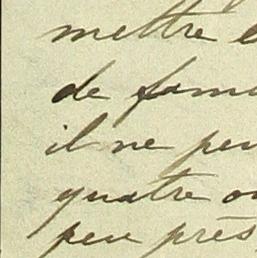 mettre
de fam
il ne peu
quatre ou
peu près